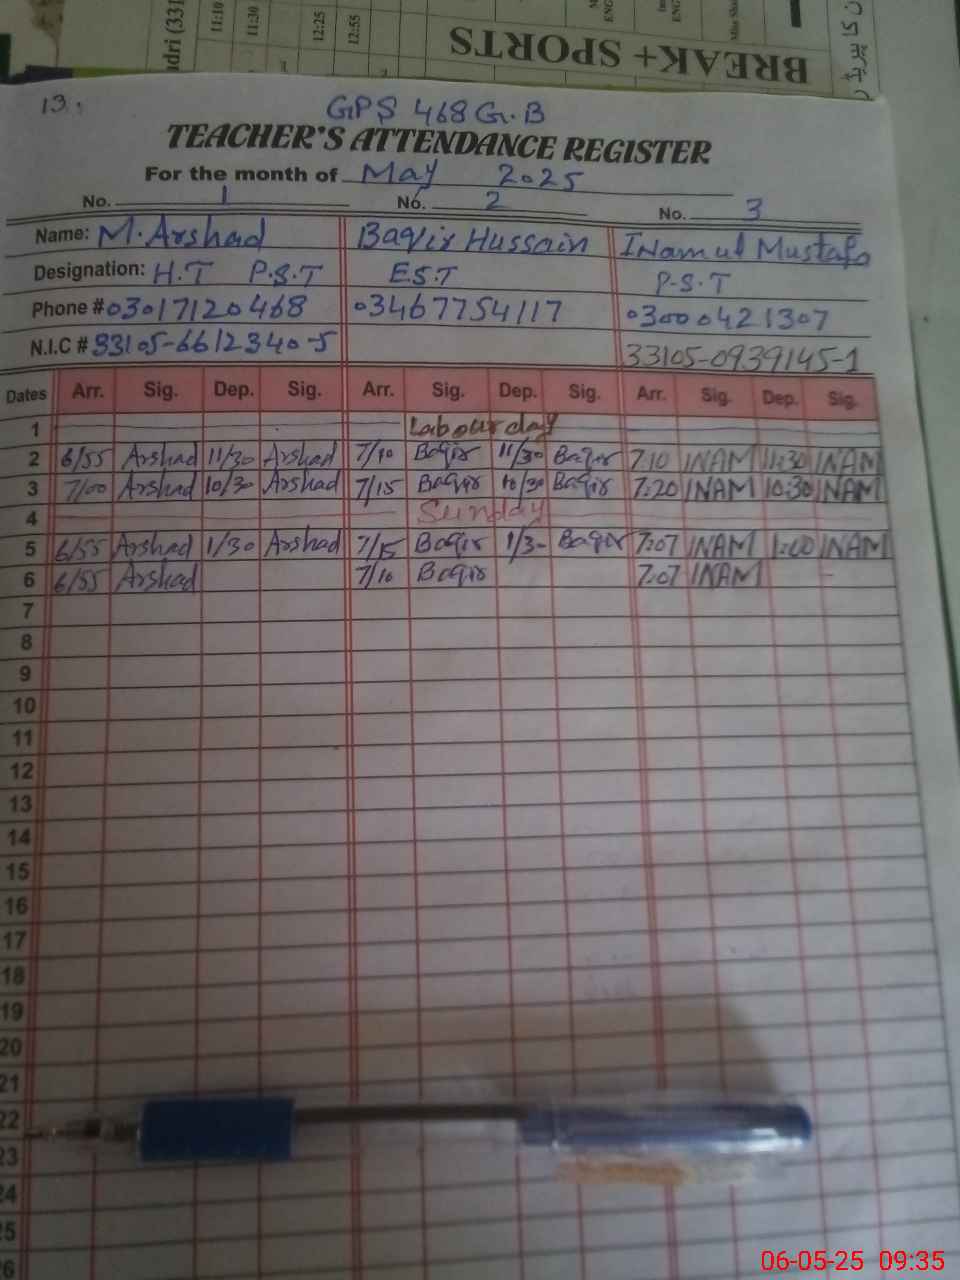 (331
11:10
11:30
12:25
12:55
BREAK+ SPORTS
13.
GPS 468 G.B
TEACHER'S ATTENDANCE REGISTER
For the month of May 2025
No. 1 No. 2 No. 3
Name: M.Arshad Baqir Hussain Inamul Mustafa
Designation: H.T P.S.T E.S.T P.S.T
Phone # 03017120468 03467754117 03000421307
N.I.C # 33105-6612340-5 33105-0939145-1
Dates Arr. Sig. Dep. Sig. Arr. Sig. Dep. Sig. Arr. Sig. Dep. Sig.
1 Labour day
2 6/55 Arshad 11/30 Arshad 7/10 Baqir 11/30 Baqir 7:10 INAM 11:30 INAM
3 7/00 Arshad 10/30 Arshad 7/15 Baqir 10/30 Baqir 7:20 INAM 10:30 INAM
4 Sunday
5 6/55 Arshad 1/30 Arshad 7/15 Baqir 1/3- Baqir 7:07 INAM 1:00 INAM
6 6/55 Arshad 7/10 Baqir 7:07 INAM
7
8
9
10
11
12
13
14
15
16
17
18
19
20
21
22
23
24
25
26
06-05-25 09:35